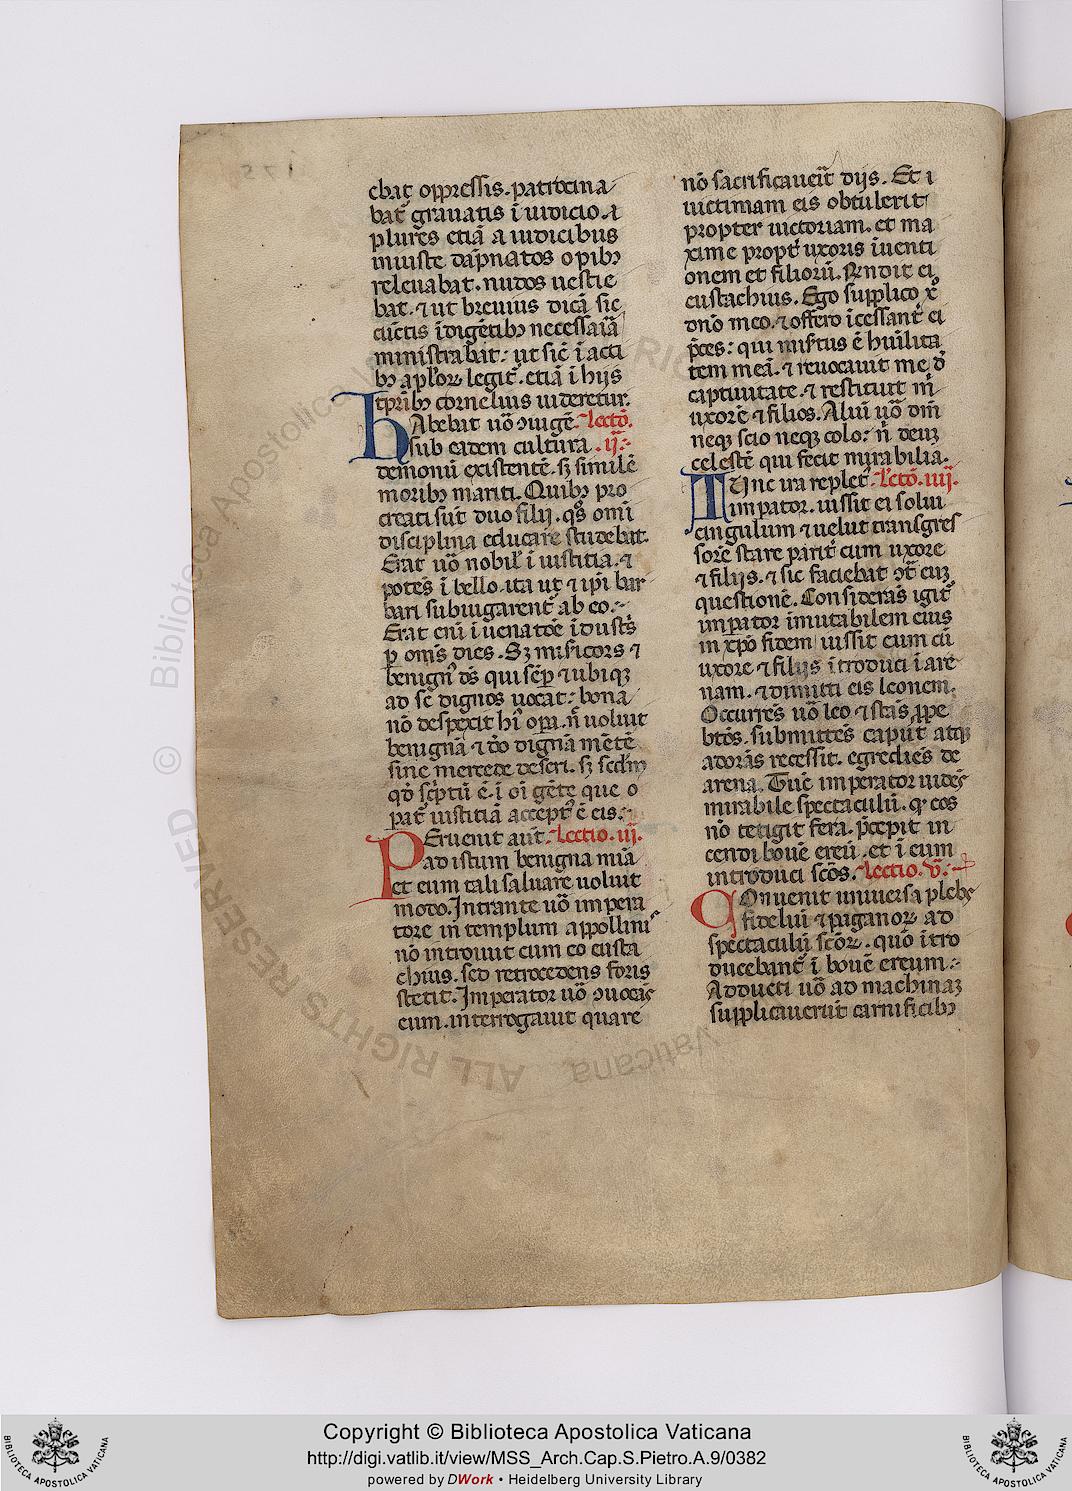 ebat oppressis. patrocina
bat̅ grauatis i̅ iudicio. ⁊
plures etia̅ a iudicibus
iniuste da̅pnatos opibꝫ
releuabat. nudos uestie
bat. ⁊ ut breuius dica̅ sic
cu̅ctis i̅dige̅tibꝫ necessa̅ia̅
ministrabat: ut sic̅ i̅ acti
bꝫ apl̅oꝝ legit̅. etia̅ i̅ hijs
tp̅ribꝫ cornelius uideretur.
HAbebat u̅o ꝯiuge̅. Lectio̅.
sub eadem cultura .ij̅.
demonu̅ existente̅. sꝫ simile̅
moribꝫ mariti. Quibꝫ pro
creati su̅t duo filij. qo̅s omi̅
disciplina educare studebat.
Erat u̅o nobil̅ i̅ iustitia. ⁊
pote̅s i̅ bello. ita ut ⁊ ip̅i bar
bari subiugarent̅ ab eo.
Erat eni̅ i̅ uenato̅e i̅dust̅s
ꝑ om̅s dies. Sꝫ mis̅icors ⁊
benign᾿ d̅s qui se̅ꝑ ⁊ ubiqꝫ
ad se̅ dignos uocat: bona
no̅ despexit hi᾿ oꝑa. n̅ uoluit
benigna̅ ⁊ d̅o digna̅ me̅te̅
sine mercede deseri. sꝫ sed̅m
qd̅ sc̅ptu̅ e̅. i̅ oi̅ ge̅te que o
ꝑat̅ iustitia̅ accept᾿ e̅ eis.
PEruenit aut̅. Lectio .iij̅.
ad istum benigna mi̅a
et eum tali saluare uoluit
modo. Intrante u̅o impera
tore in templum appollini᾿
no̅ introiuit cum eo eusta
chius. sed retrocedens foris
stetit. Imperator u̅o ꝯuoca̅s
eum. interrogauit quare
no̅ sacrificaueri̅t dijs. Et i
uictimam eis obtulerit
propter uictoriam. et ma
xime propt̅ uxoris i̅uenti
onem et filioru̅. R̅ndit ei
eustachius. Ego supplico x᾿
dn̅o meo. ⁊ offero i̅cessant̅ ei
p̅ces: qui mis̅tus e̅ hu̅ilita
tem mea̅. ⁊ reuocauit me d̅
captiuitate. ⁊ restituit m̅
uxore̅ ⁊ filios. Aliu̅ u̅o dm̅
neqꝫ scio neqꝫ colo: n̅ deuꝫ
celeste̅ qui fecit mirabilia.
TUnc ira replet᾿. Lecto̅. iiij̅.
imperator. iussit ei solui
cingulum ⁊ uelut transgres
sore̅ stare parit̅ cum uxore
⁊ filijs. ⁊ sic faciebat ↄt̅ euꝫ
questione̅. Considera̅s igit̅
imperator i̅mutabilem eius
in xp̅o fidem iussit eum cu̅
uxore ⁊ filijs i̅troduci i̅ are
nam. ⁊ dimitti eis leonem.
Occurre̅s u̅o leo ⁊ sta̅s ꝓpe
bt̅os. submitte̅s caput atqꝫ
adora̅s recessit. egredie̅s de
arena. Tu̅c imperator uide̅s
mirabile spectaculu̅. qꝫ eos
no̅ tetigit fera. p̅cepit in
cendi boue̅ ereu̅. et i̅ eum
introduci sc̅os. Lectio. v̅.
COnuenit uniuersa plebs
fideliu̅ ⁊ paganoꝝ ad
spectaculu̅ sc̅oꝝ. quo̅ i̅tro
ducebant̅ i̅ boue̅ ereum.
Adducti u̅o ad machinaꝫ
supplicaueru̅t carnificibꝫ
Copyright © Biblioteca Apostolica Vaticana
http://digi.vatlib.it/view/MSS_Arch.Cap.S.Pietro.A.9/0382
powered by DWork • Heidelberg University Library
BIBLIOTECA APOSTOLICA VATICANA
BIBLIOTECA APOSTOLICA VATICANA